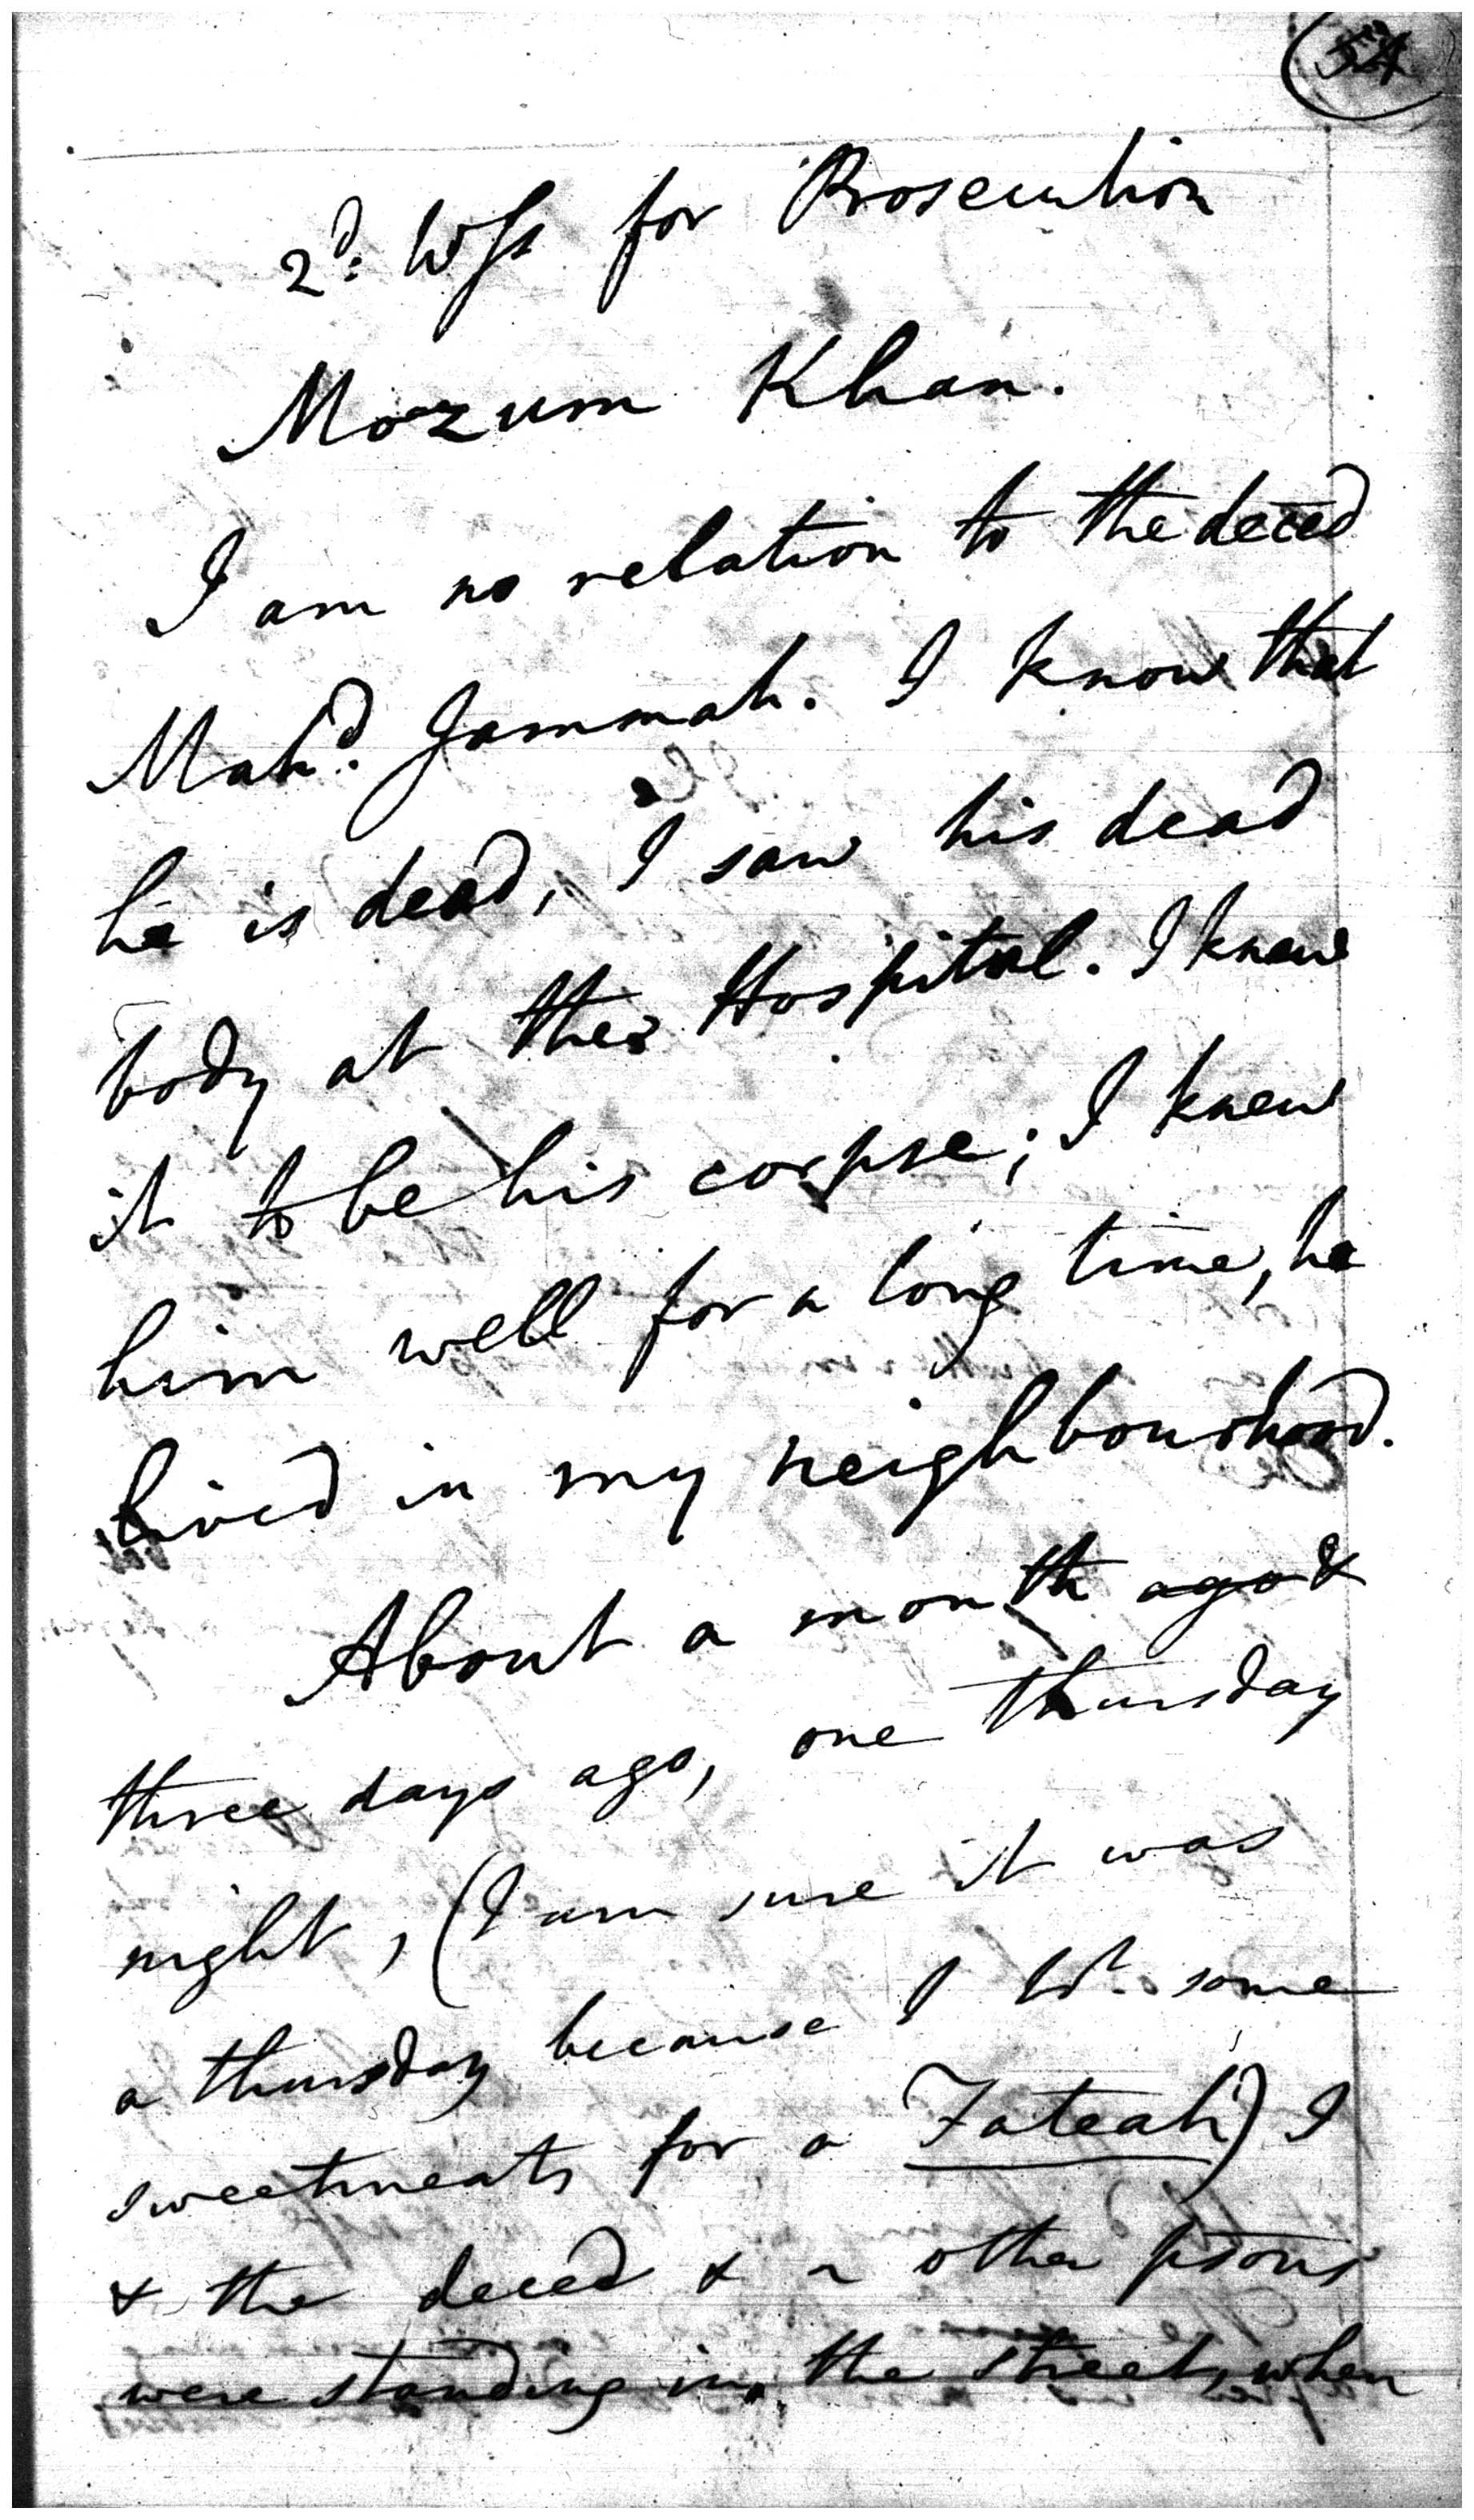 54
2d: Wss for Prosecution
Mozum Khan.
I am no relation to the deced
Mahd. Jammah. I know that
he is dead, I saw his dead
body at the Hospital. I knew
it to be his corpse; I knew
him well for a long time, he
lived in my neighbourhood.
About a month ago &
three days ago, one thursday
night, (I am sure it was
a thursday because I some
sweetmeats for a Fateah) I
& the deced & other psons
were standing in the street, when